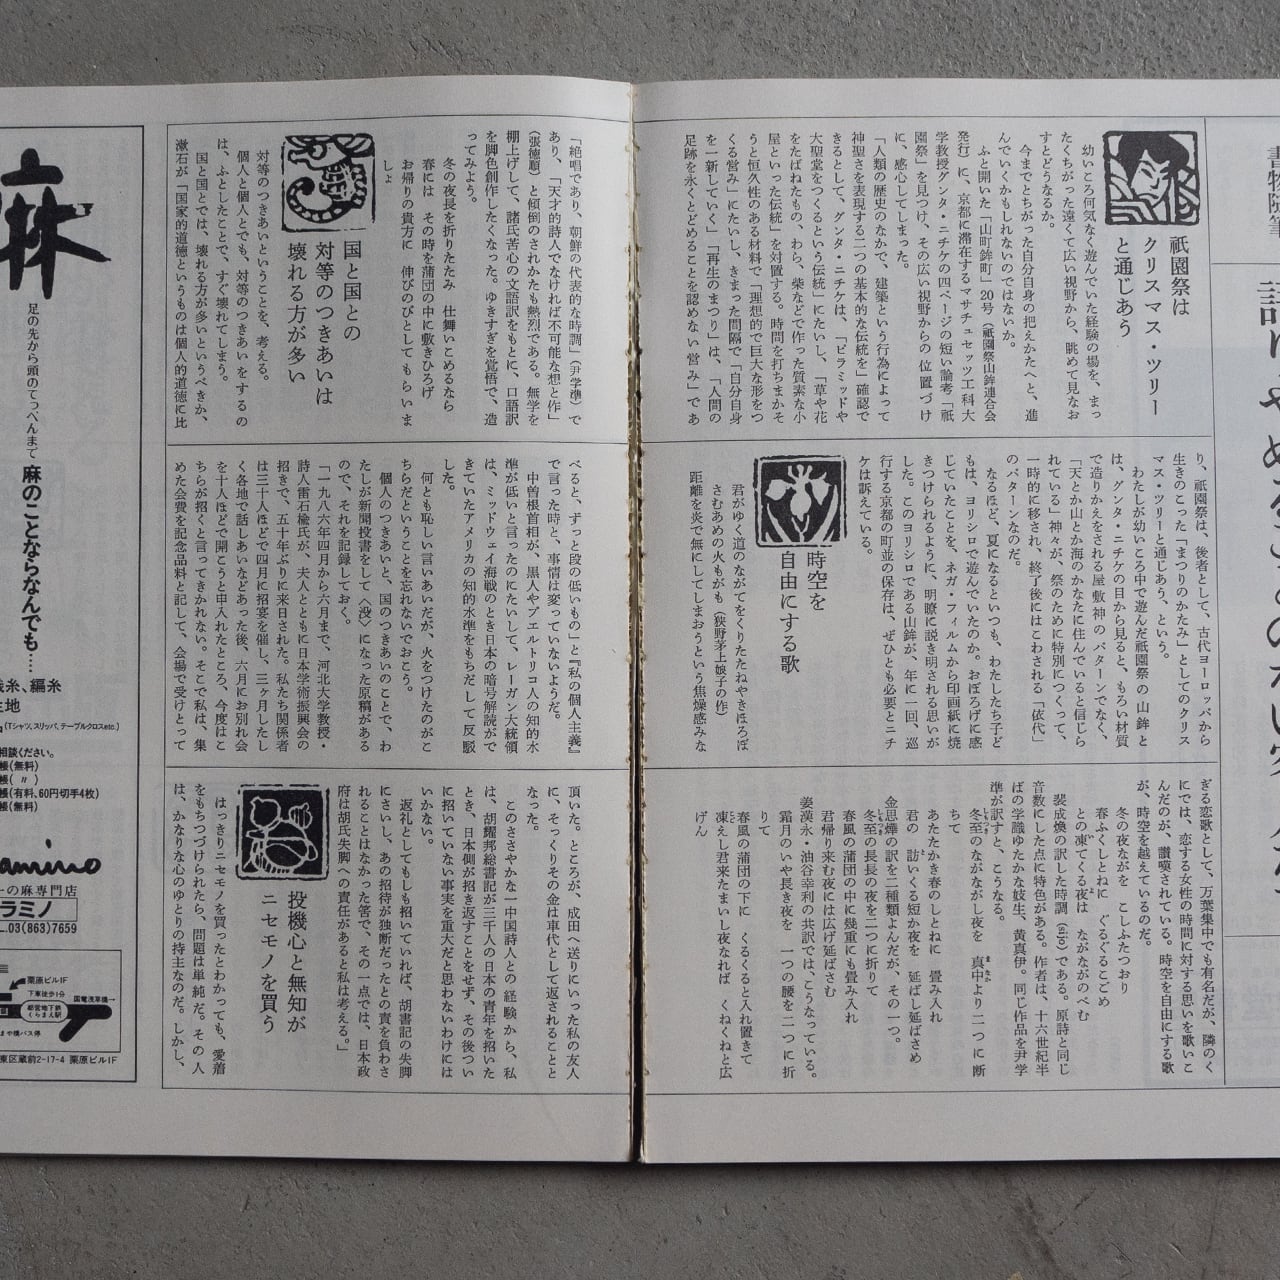 書物随筆
祇園祭は
クリスマス・ツリー
と通じあう
幼いころ何気なく遊んでいた経験の場を、まっ
たくちがった遠くて広い視野から、眺めて見なお
すとどうなるか。
今までとちがった自分自身の把えかたへと、進
んでいくかもしれないのではないか。
ふと開いた「山町鉾町」20号(祇園祭山鉾連合会
発行)に、京都に滞在するマサチュセッツ工科大
学教授グンタ・ニチケの四ページの短い論考「祇
園祭」を見つけ、その広い視野からの位置づけ
に、感心してしまった。
「人類の歴史のなかで、建築という行為によって
神聖さを表現する二つの基本的な伝統を」確認で
きるとして、グンタ・ニチケは、「ピラミッドや
大聖堂をつくるという伝統」にたいし、「草や花
をたばねたもの、わら、柴などで作った質素な小
屋といった伝統」を対置する。時間を打ちまかそ
うと恒久性のある材料で「理想的で巨大な形をつ
くる営み」にたいし、きまった間隔で「自分自身
を一新していく」「再生のまつり」は、「人間の
足跡を永くとどめることを認めない営み」であ
り、祇園祭は、後者として、古代ヨーロッパから
生きのこった「まつりのかたみ」としてのクリス
マス・ツリーと通じあう、という。
わたしが幼いころ中で遊んだ祇園祭の山鉾と
は、グンタ・ニチケの目から見ると、もろい材質
で造りかえをされる屋敷神のパターンでなく、
「天とか山とか海のかなたに住んでいると信じら
れている」神々が、祭のために特別につくって、
一時的に移され、終了後にはこわされる「依代」
のパターンなのだ。
なるほど、夏になるといつも、わたしたち子ど
もは、ヨリシロで遊んでいたのか。おぼろげに感
じていたことを、ネガ・フィルムから印画紙に焼
きつけられるように、明瞭に説き明される思いが
した。このヨリシロである山鉾が、年に一回、巡
行する京都の町並の保存は、ぜひとも必要とニチ
ケは訴えている。
時空を
自由にする歌
君がゆく道のながてをくりたたねやきほろぼ
さむあめの火もがも(狭野茅上娘子の作)
距離を炎で無にしてしまおうという焦燥感みな
ぎる恋歌として、万葉集中でも有名だが、隣のく
にでは、恋する女性の時間に対する思いを歌いこ
んだのが、讃嘆されている。時空を自由にする歌
が、時空を越えているのだ。
冬の夜ながを こしふたつおり
春ふくしとねに ぐるぐるこごめ
との凍てくる夜は ながながのべむ
裴成煥の訳した時調(sijo)である。原詩と同じ
音数にした点に特色がある。作者は、十六世紀半
ばの学識ゆたかな妓生、黄真伊。同じ作品を尹学
準が訳すと、こうなる。
冬至のながながし夜を 真中より二つに断
ちて
あたたかき春のしとねに 畳み入れ
君の 訪いくる短か夜を 延ばし延ばさめ
金思燁の訳を二種類よんだが、その一つ。
冬至の長長の夜を二つに折りて
春風の蒲団の中に幾重にも畳み入れ
君帰り来む夜には広げ延ばさむ
姜漢永・油谷幸利の共訳では、こうなっている。
霜月のいや長き夜を 一つの腰を二つに折
りて
春風の蒲団の下に くるくると入れ置きて
凍えし君来たまいし夜なれば くねくねと広
げん
「絶唱であり、朝鮮の代表的な時調」(尹学準)で
あり、「天才的詩人でなければ不可能な想と作」
(張徳順)と傾倒のされかたも熱烈である。無学を
棚上げして、諸氏苦心の文語訳をもとに、口語訳
を脚色創作したくなった。ゆきすぎを覚悟で、造
ってみよう。
冬の夜長を折りたたみ 仕舞いこめるなら
春には その時を蒲団の中に敷きひろげ
お帰りの貴方に 伸びのびとしてもらいま
しょ
国と国との
対等のつきあいは
壊れる方が多い
対等のつきあいということを、考える。
個人と個人とでも、対等のつきあいをするの
は、ふとしたことで、すぐ壊れてしまう。
国と国とでは、壊れる方が多いというべきか、
漱石が「国家的道徳というものは個人的道徳に比
べると、ずっと段の低いもの」と『私の個人主義』
で言った時と、事情は変っていないようだ。
中曽根首相が、黒人やプエルトリコ人の知的水
準が低いと言ったのにたいして、レーガン大統領
は、ミッドウェイ海戦のとき日本の暗号解読がで
きていたアメリカの知的水準をもちだして反駁
した。
何とも恥しい言いあいだが、火をつけたのがこ
ちらだということを忘れないでおこう。
個人のつきあいと、国のつきあいのことで、わ
たしが新聞投書をして〈没〉になった原稿がある
ので、それを記録しておく。
「一九八六年四月から六月まで、河北大学教授・
詩人雷石楡氏が、夫人とともに日本学術振興会の
招きで、五十年ぶりに来日された。私たち関係者
は三十人ほどで四月に招宴を催し、三ヶ月したし
く各地で話しあいなどあった後、六月にお別れ会
を十人ほどで開こうと申入れたところ、今度はこ
ちらが招くと言ってきかれない。そこで私は、集
めた会費を記念品料と記して、会場で受けとって
頂いた。ところが、成田へ送りにいった私の友人
に、そっくりその金は車代として返されることと
なった。
このささやかな一中国詩人との経験から、私
は、胡耀邦総書記が三千人の日本の青年を招いた
とき、日本側が招き返すことをせず、その後つい
に招いていない事実を重大だと思わないわけには
いかない。
返礼としてもしも招いていれば、胡書記の失脚
にさいし、あの招待が独断だったとの責を負わさ
れることはなかった筈で、その一点では、日本政
府は胡氏失脚への責任があると私は考える。」
投機心と無知が
ニセモノを買う
はっきりニセモノを買ったとわかっても、愛着
をもちつづけられたら、問題は単純だ。その人
は、かなりな心のゆとりの持主なのだ。しかし、
麻
足の先から頭のてっぺんまで
麻のことならなんでも‥‥
糸、編糸
地
(Tシャツ、スリッパ、テーブルクロスetc.)
相談ください。
帳(無料)
帳( 〃 )
帳(有料、60円切手4枚)
帳(無料)
amino
の麻専門店
ラミノ
L.03(863)7659
栗原ビル1F
下車徒歩1分
国電浅草橋
都営地下鉄
くらまえ駅
まや橋バス停
東区蔵前2-17-4 栗原ビル1F